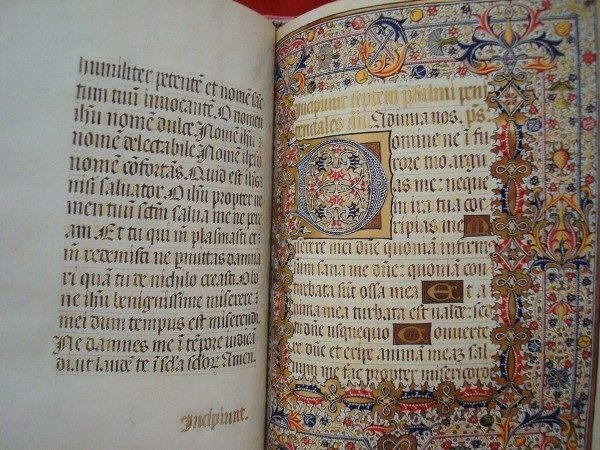 humiliter petente et nomē sāc
tum tuū innocante. O nomen
ihū nomē dulce. Nomē ihū
nomē delectabile. Nomē ihesu
nomē cōfortās. Quid est ihūs
nisi saluator. O ihū propter no
men tuū sctm salua me ne pere
am. Et tu qui me plasmasti et
redemisti ne pmittas damna
ri quā tu de nichilo creasti. O bo
ne ihū benignissime miserere
mei dum tempus est miserendi
Ne damnes me ī tēpore iudicī
di ut laudē te ī scla sclor. Amen.
Incipiunt.
Incipiunt septem psalmi peni
tenciales. añ. Ne reminiscaris. ps.
Domine ne ī fu
rore tuo argu
as me: neque
in ira tua cor
ripias me. Mi
serere mei dne quoniam infirmus
sum sana me dne: quoniā con
turbata sūt ossa mea. Et a
nima mea turbata est valde: sed
tu dne usquequo. Conuerte
re dne et eripe animā meā: sal
uum me fac propter misericordi